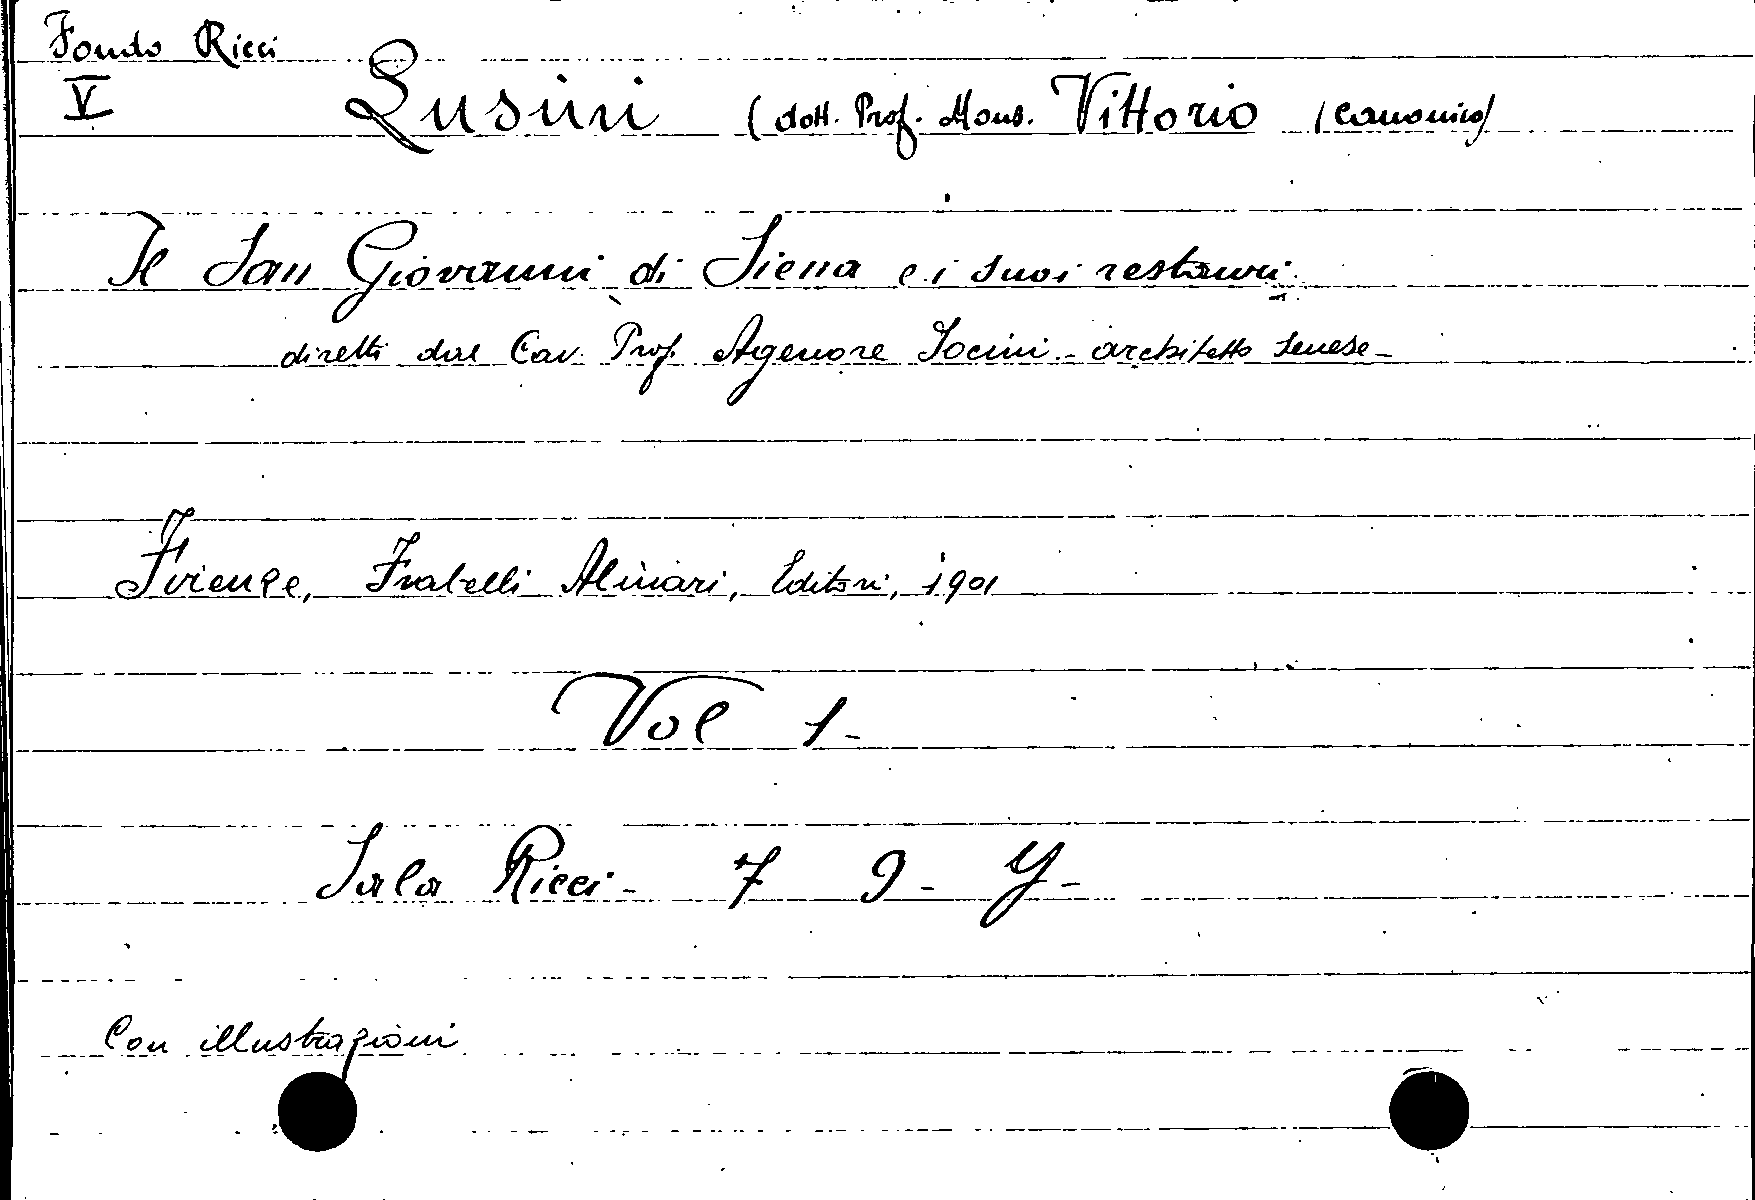 Fondo Ricci
V Lusini (dott. Prof. Mons. Vittorio (canonico)
Il San Giovanni di Siena e i suoi restauri.
diretti dal Cav. Prof. Agenore Socini - architetto senese -
Firenze, Fratelli Alinari, Editori, 1901
Vol 1 -
Sala Ricci - 7 9 - Y -
Con illustrazioni